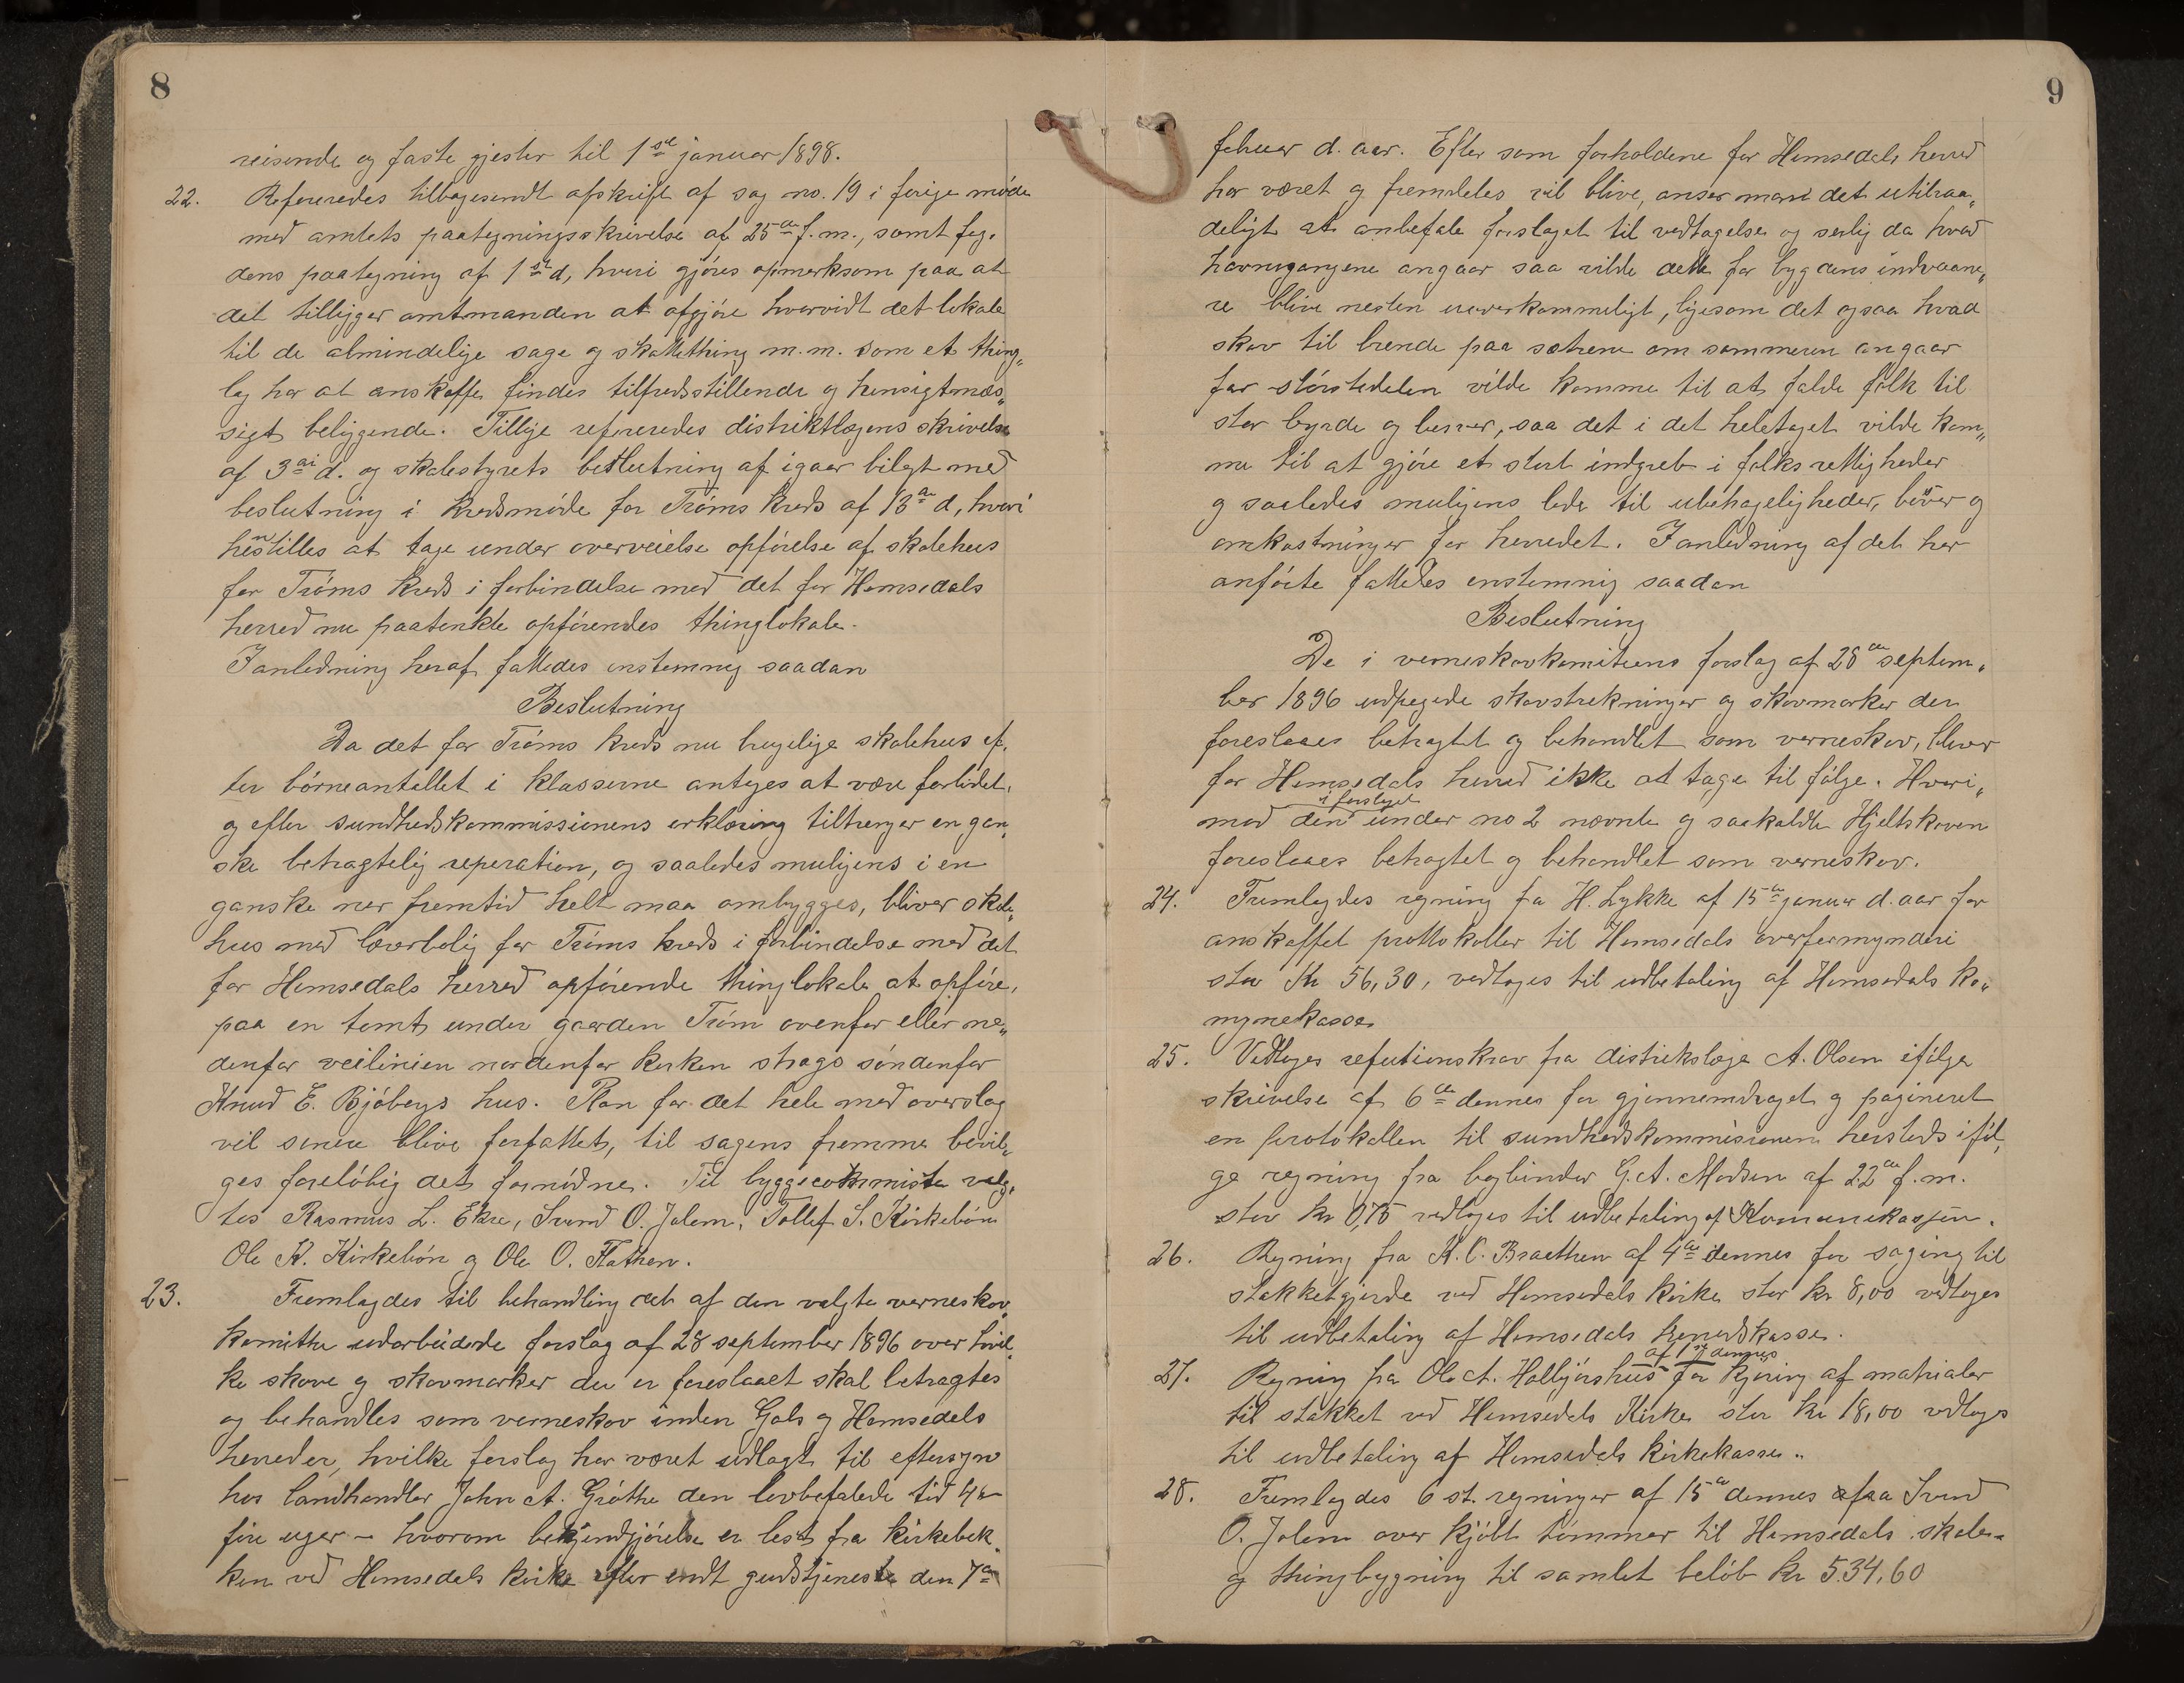 8
reisende og faste gjester til 1ste januar 1898.
22. Refereredes tilbagesendt afskrift af sag no. 19 i forige møde
med amtets paategningsskrivelse af 25de f. m., samt fog„
dens paategning af 1ste d, hvori gjöres opmerksom paa at
det tilligger amtmanden at afgjöre hvorvidt det lokale
til de almindelige sage og skattething m.m. som et thing„
lag har at anskaffe findes tilfredsstillende og hensigtmæs„
sigt beliggende. Tillige refereredes distriktlægens skrivelse
af 3die d. og skolestyrets beslutning af igaar bilagt med
beslutning i kredsmöde for Tröms kreds af 13de d, hvori
henstilles at tage under overveielse opförelse af skolehus
for Tröms kreds i forbindelse med det for Hemsedals
herred nu paatenkte opförendes thinglokale.
I anledning heraf fattedes enstemnig saadan
Beslutning
Da det for Tröms kreds nu brugelige skolehus ef„
ter börneantallet i klasserne antages at være forlidet,
og efter sundhedskommissionens erklæring tiltrenger en gan„
ske betragtelig reperation, og saaledes muligens i en
ganske nær fremtid helt maa ombygges, bliver skole„
hus med lærerbolig for Tröms kreds i forbindelse med det
for Hemsedals herred opförende thinglokale at opföre,
paa en tomt under gaarden Tröm ovenfor eller ne„
denfor veilinien nordenfor kirken strags söndenfor
Knud E. Bjöbergs hus. Plan for det hele med overslag
vil senere blive forfattet, til sagens fremme bevil„
ges foreløbig det fornödne. Til byggecokmiste valg„
tes Rasmus L. Ekre, Svend O. Jalem, Tollef S. Kirkebön
Ole K. Kirkebön og Ole O. Flathen.
23. Fremlagdes til behandling det af den valgte verneskov„
komithe udarbeidede forslag af 28 september 1896 over hvil„
ke skove og skovmarker der er foreslaaet skal betragtes
og behandles som verneskov inden Gols og Hemsedals
herreder, hvilke forslag har været udlagt til eftersyn
hos landhandler John A. Gröthe den lovbefalede tid 4 –
fire uger – hvorom bekjendtgjörelse er lest fra kirkebak„
ken ved Hemsedals kirke efter endt gudstjeneste den 7de
9
febuar d. aar. Efter som forholdene for Hemsedals herred
har været og fremdeles vil blive, anser man det utilraa„
deligt at anbefale forslaget til vedtagelse og serlig da hvad
havnegangene angaar saa vilde dette for bygdens indvaane„
re blive nesten uoverkommeligt, ligesom det ogsaa hvad
skov til brende paa sætrene om sommeren angaar
for störstedelen vilde komme til at falde folk til
stor byrde og besver, saa det i det heletaget vilde kom„
me til at gjöre et stort indgreb i folks rettigheder
og saaledes muligens lede til ubehageligheder, besver og
omkostninger for herredet. I anledning af det her
anförte fattedes enstemnig saadan
Beslutning
De i verneskovkomiteens forslag af 28de septem„
ber 1896 udpegede skovstrekninger og skovmarker der
foreslaaes betragtet og behandlet som verneskov, bliver
for Hemsedals herred ikke at tage til fölge. Hvori„
i forslaget
mod den under no 2 nævnte og saakaldte Hjeltskoven
foreslaaes betragtet og behandlet som verneskov.
24. Fremlagdes regning fra H. Lykke af 15de januar d. aar for
anskaffet prottokoller til Hemsedals overformynderi
stor Kr 56,30, vedtoges til udbetaling af Hemsedals ko„
mynekasse
25. Vedtoges refutionskrav fra distrikslæge A. Olsen ifölge
skrivelse af 6te dennes for gjennemdraget og pagineret
en protokollen til sundhedskommisionen hersteds iföl„
ge regning fra bogbinder G. A. Madsen af 22de f. m.
stor kr 0,75 vedtoges til udbetaling af Komunekassen.
26. Regning fra K. C. Braathen af 4de dennes for saging til
stakketgjerde ved Hemsedals kirke stor kr 8,00 vedtoges
til udbetaling af Hemsedals herredskasse.
af 1ste dennes
27. Regning fra Ole A. Halbjörshus for kjöring af matrialer
til stakket ved Hemsedals Kirke stor kr 18,00 vedtoges
til udbetaling af Hemsedals kirkekasse.
28. Fremlagdes 6 st. regninger af 15de dennes fra Svend
O. Jalem over kjöbt tömmer til Hemsedals skole-
og thingbygning til samlet belöb kr 534,60